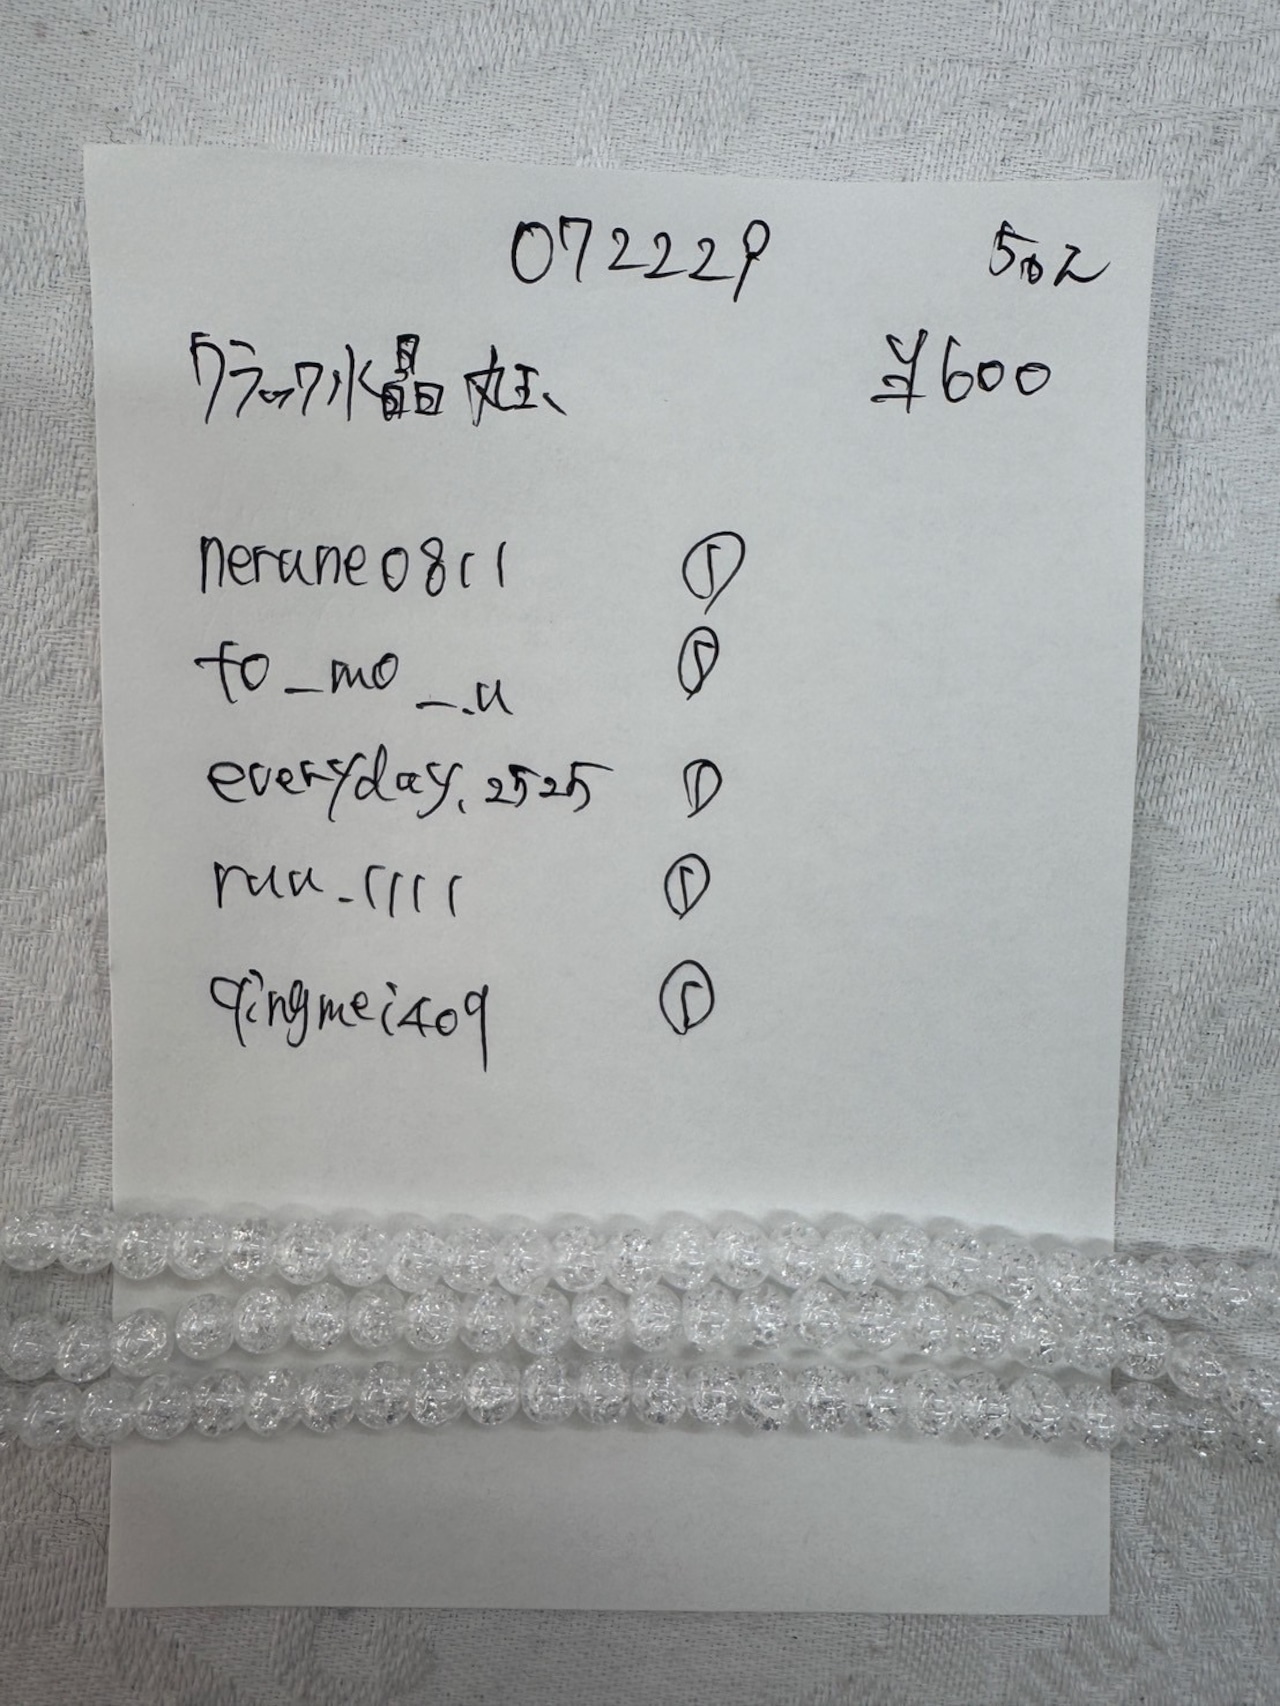 072229 5点
クラック水晶 丸玉、 ¥600
nerune0811 ①
to_mo__.u ①
everyday.2525 ①
ruu_1111 ①
qingmei409 ①